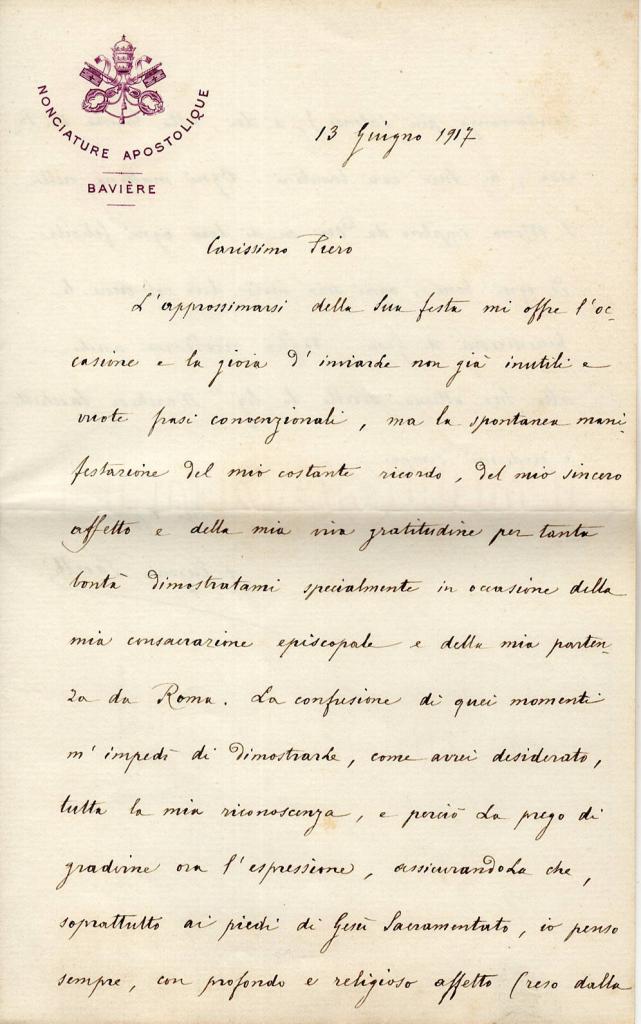 NONCIATURE APOSTOLIQUE
BAVIÈRE
13 Giugno 1917
Carissimo Piero
L'approssimarsi della Sua festa mi offre l'oc-
casione e la gioia d'inviarLe non già inutili e
vuote frasi convenzionali, ma la spontanea mani-
festazione del mio costante ricordo, del mio sincero
affetto e della mia viva gratitudine per tanta
bontà dimostratami specialmente in occasione della
mia consacrazione episcopale e della mia parten-
za da Roma. La confusione di quei momenti
m'impedì di dimostrarLe, come avrei desiderato,
tutta la mia riconoscenza, e perciò La prego di
gradirne ora l'espressione, assicurandoLa che,
soprattutto ai piedi di Gesù Sacramentato, io penso
sempre, con profondo e religioso affetto (reso dalla